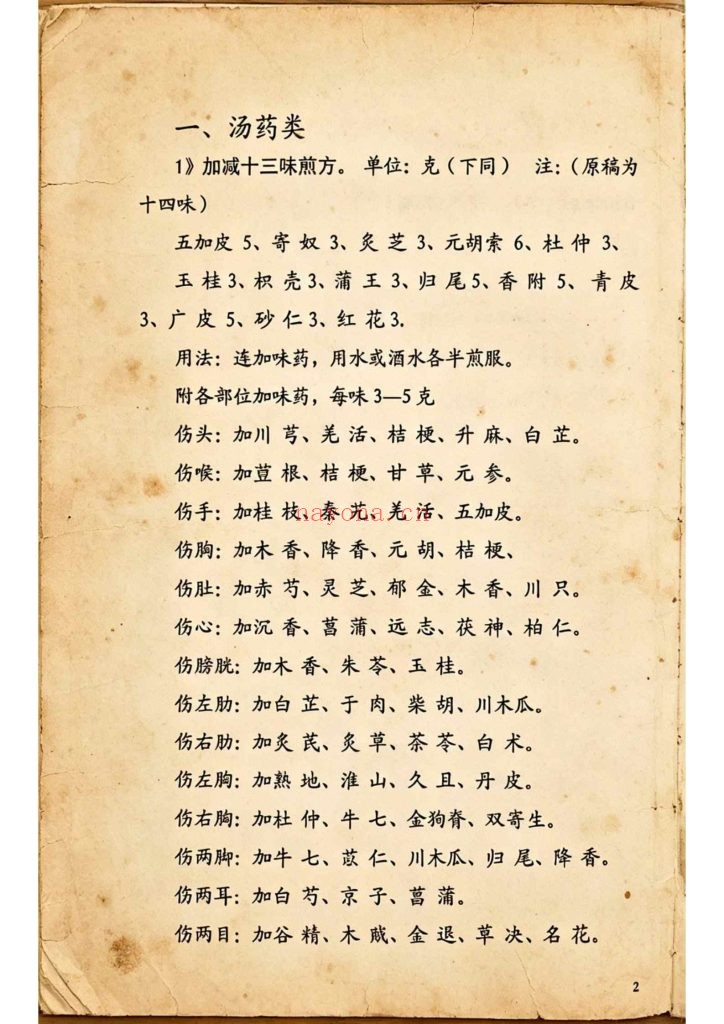 一、汤药类
1》加减十三味煎方。 单位：克（下同） 注：（原稿为
十四味）
五加皮 5、寄奴 3、炙芝 3、元胡索 6、杜仲 3、
玉桂 3、枳壳 3、蒲王 3、归尾 5、香附 5、青皮
3、广皮 5、砂仁 3、红花 3.
用法：连加味药，用水或酒水各半煎服。
附各部位加味药，每味 3—5 克
伤头：加川芎、羌活、桔梗、升麻、白芷。
伤喉：加荳根、桔梗、甘草、元参。
伤手：加桂枝、秦艽、羌活、五加皮。
nayona.cn
伤胸：加木香、降香、元胡、桔梗、
伤肚：加赤芍、灵芝、郁金、木香、川只。
伤心：加沉香、菖蒲、远志、茯神、柏仁。
伤膀胱：加木香、朱苓、玉桂。
伤左肋：加白芷、于肉、柴胡、川木瓜。
伤右肋：加炙芪、炙草、茶苓、白术。
伤左胸：加熟地、淮山、久且、丹皮。
伤右胸：加杜仲、牛七、金狗脊、双寄生。
伤两脚：加牛七、苡仁、川木瓜、归尾、降香。
伤两耳：加白芍、京子、菖蒲。
伤两目：加谷精、木贼、金退、草决、名花。
2